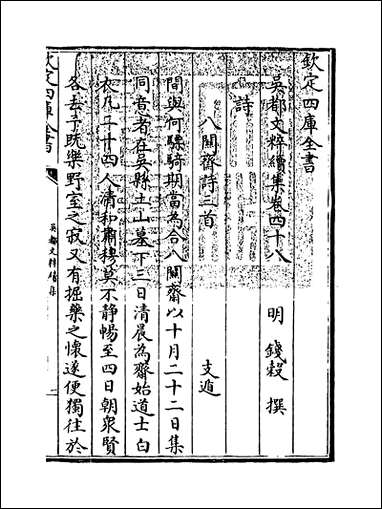 欽定四庫全書
吳都文粹續集卷四十八
明 錢穀 撰
詩
八關齋詩三首
支遁
間與何驃騎期當為合八關齋以十月二十二日集
同意者在吳縣土山墓下三日清晨為齋始道士白
衣凡二十四人清和肅穆莫不靜暢至四日朝衆賢
各去予既樂野室之寂又有掘藥之懷遂便獨往於
欽定四庫全書
吳都文粹續集
一